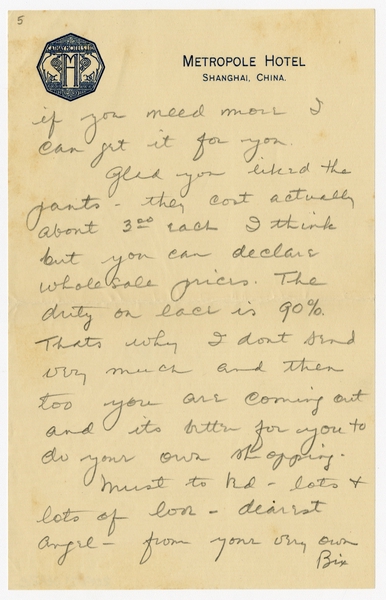 5
CATHAY HOTELS LTD
METROPOLE HOTEL
SHANGHAI, CHINA.
if you need more I
can get it for you.
Glad you liked the
pants - they cost actually
about 3.00 each I think
but you can declare
wholesale prices. The
duty on lace is 90%.
Thats why I dont send
very much and then
too you are coming out
and its better for you to
do your own shopping.
Must to bed - lots &
lots of love - dearest
angel - from your very own
Bix